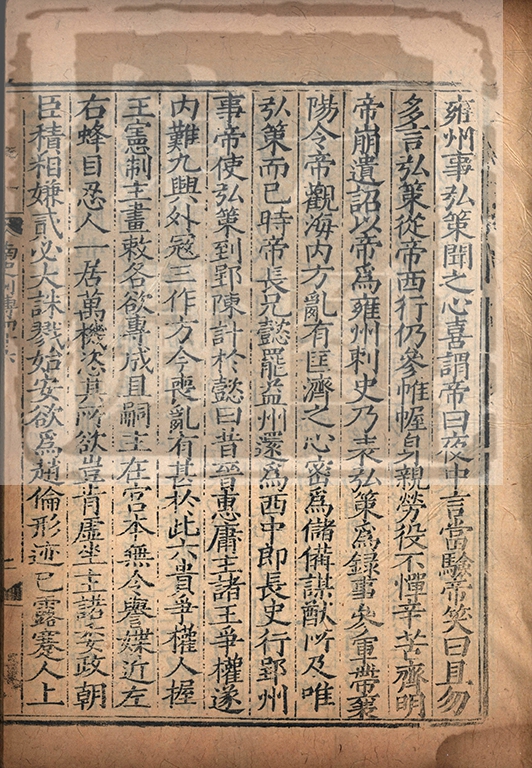 雍州事弘策聞之心喜謂帝曰夜中言當驗帝笑曰且勿
多言弘策從帝西行仍參帷幄身親勞役不憚辛苦齊明
帝崩遺詔以帝爲雍州刺史乃表弘策爲録事參軍帶襄
陽令帝觀海内方亂有匡濟之心密爲儲備謀猷所及唯
弘策而已時帝長兄懿罷益州還爲西中郎長史行郢州
事帝使弘策到郢陳計於懿曰昔晉惠庸主諸王爭權遂
内難九興外宼三作方今喪亂有甚於此六貴爭權人握
王憲制主畫敕各欲專威且嗣主在宫本無令譽媟近左
右蜂目忍人一居萬機恣其所欲豈肯虚坐主諾委政朝
臣積相嫌貳必大誅戮始安欲爲趙倫形迹已露蹇人上